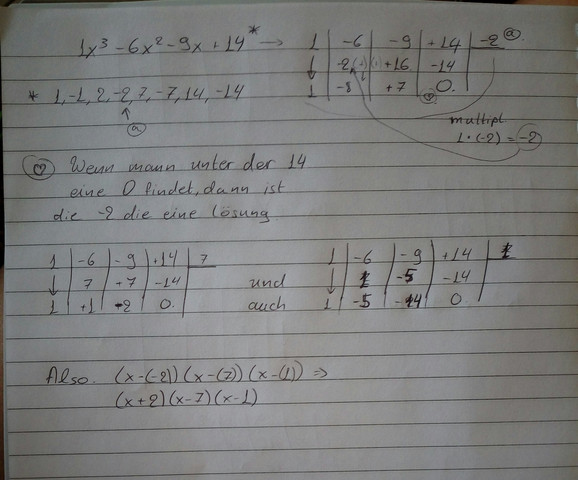 1x³ - 6x² - 9x + 14 * → 1 | -6 | -9 | +14 | -2 ⓐ
↓ | -2 | +16 | -14
1 | -8 | +7 | 0.
* 1, -1, 2, -2, 7, -7, 14, -14
↑
ⓐ
multipl
1 · (-2) = -2
Wenn mann unter der 14
eine 0 findet, dann ist
die -2 die eine lösung
1 | -6 | -9 | +14 | 7
↓ | 7 | +7 | -14
1 | +1 | -2 | 0.
und
auch
1 | -6 | -9 | +14 | 1
↓ | 1 | -5 | -14
1 | -5 | -14 | 0
Also. (x-(-2)) (x-(7)) (x-(1)) ⇒
(x+2) (x-7) (x-1)